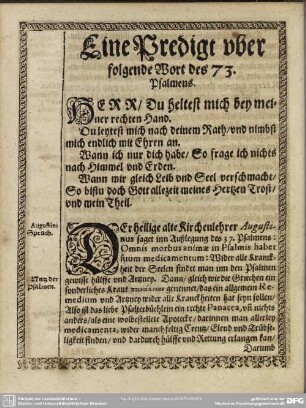 Eine Predigt vber
folgende Wort des 73.
Psalmens.
HERR / Du heltest mich bey mei-
ner rechten Hand.
Du leytest mich nach deinem Rath / vnd nimbst
mich endlich mit Ehren an.
Wann ich nur dich habe / So frage ich nichts
nach Himmel vnd Erden.
Wann mir gleich Leib vnd Seel verschmacht /
So bistu doch Gott allezeit meines Hertzen Trost /
vnd mein Theil.
Augustini
Spruch.
DEr heilige alte Kirchenlehrer Augusti-
nus saget inn Außlegung des 37. Psalmens:
Omnis morbus animæ in Psalmis habet
suum medicamentum: Wider alle Kranck-
heit der Seelen findet man inn den Psalmen
Nutz der
Psalmen.
gewisse hülffe vnd Artzney. Dann / gleich wie die Griechen ein
sonderliches Kraut genennet / das ein allgemein Re-
medium vnd Artzney wider alle Kranckheiten hat seyn sollen /
Also ist das liebe Psalterbüchlein ein rechte Panacea, vñ nichts
anders / als eine wolbestellete Apotecke / darinnen man allerley
medicamenta, wider manchfeltig Creutz / Elend vnd Trübse-
ligkeit finden / vnd dardurch hülffe vnd Rettung erlangen kan /
Darumb